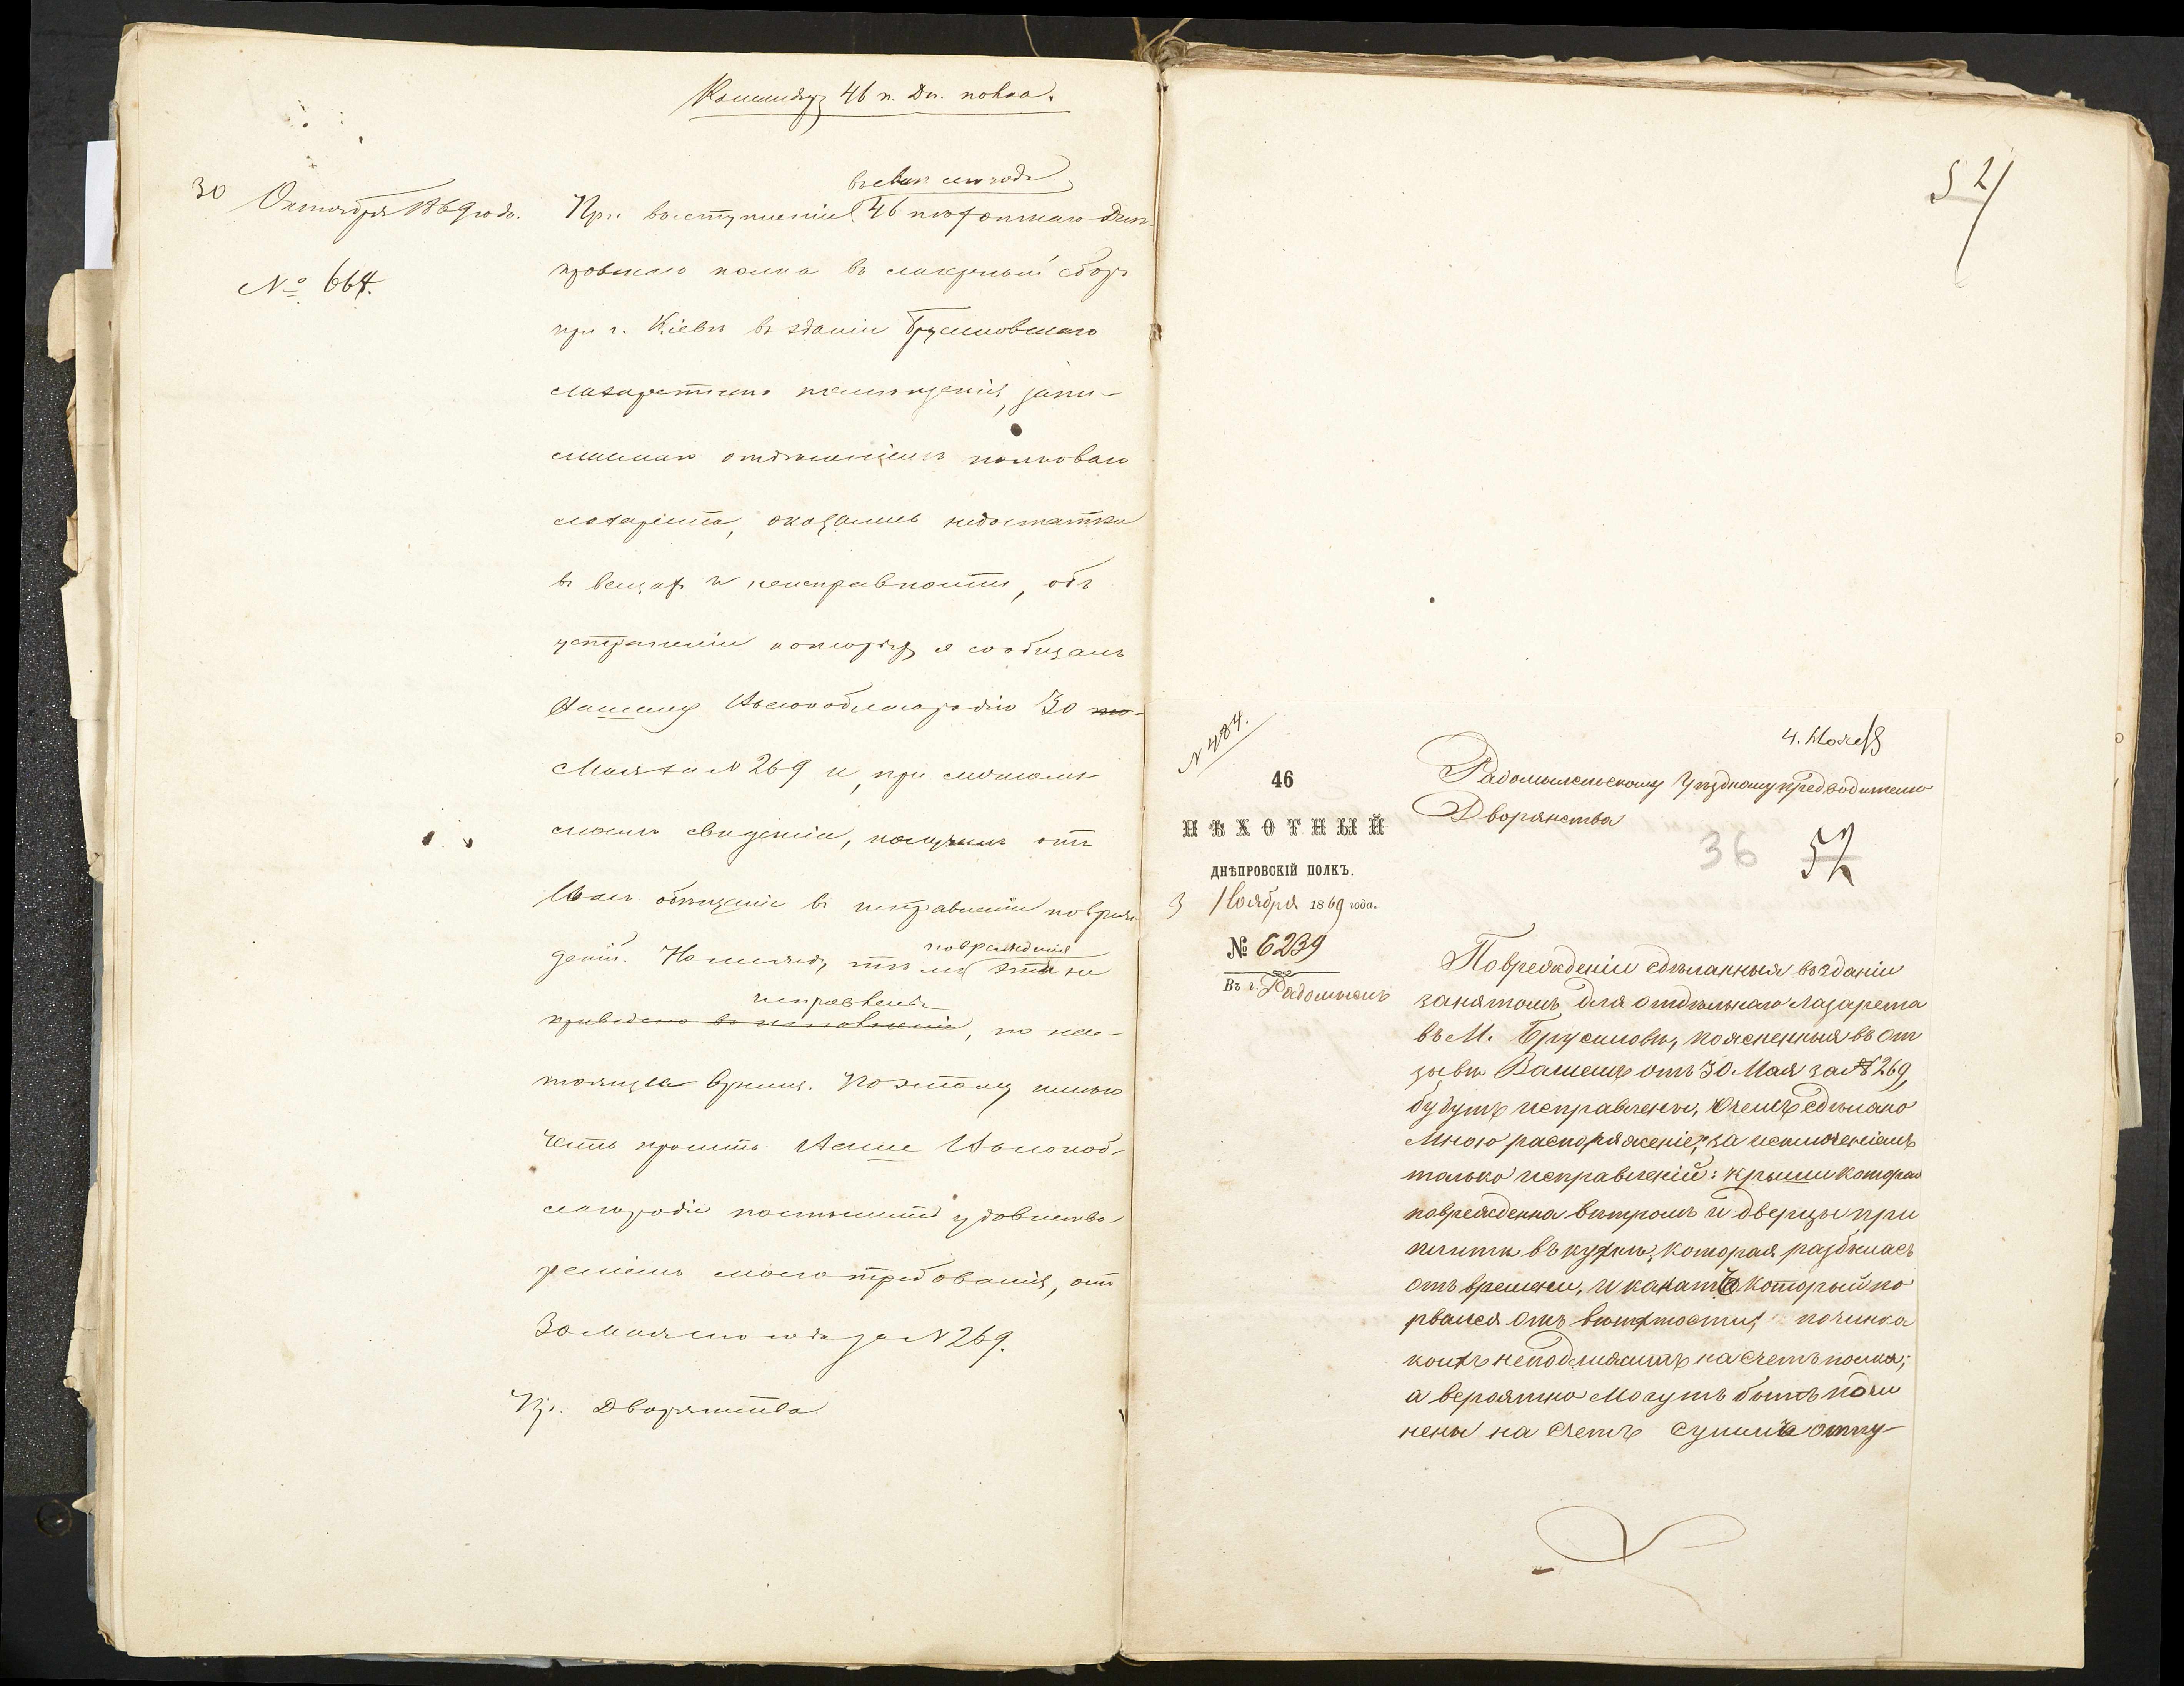 Командиру 46 п. Дн. полка.
30 Октября 1869 года.
№ 664.
въ маѣ сего года
При выступленіи 46 пѣхотнаго Днѣ-
провскаго полка въ лагерный сборъ
при г. Кіевѣ въ зданіи Брусиловскаго
лазаретнаго помѣщенія, зани-
маемаго отдѣленіемъ полковаго
лазарета, оказались недостатки
въ вещахъ и неисправности, объ
устраненіи которыхъ я сообщалъ
Вашему Высокоблагородію 30
Мая за № 269 и, при личномъ
моемъ свиданіи, получилъ отъ
Васъ обѣщаніе въ исправленіи повреж-
деній. Но между тѣмъ повреждения эти не
исправлены
приведено въ исполненіе, по нас-
тоящее время. Поэтому имѣю
честь просить Ваше Высокоб-
лагородіе поспѣшить удовлетво-
реніемъ моего требованія, отъ
30 Мая сего года за № 269.
Пр. Дворянства
52
№ 484.
4. Нояб
46
ПѢХОТНЫЙ
ДНѢПРОВСКІЙ ПОЛКЪ.
3 Ноября 1869 года.
№ 6239
Въ г. Радомыслѣ
Радомысльскому Уѣздному предводителю
Дворянства
36 52
Поврежденіи сдѣланныя въ зданіи
занятомъ для отдѣльнаго Лазарета
въ М. Брусиловѣ, поясненныя въ от
зывѣ Вашемъ отъ 30 Мая за № 269,
будутъ исправлены, о чемъ сдѣлано
Мною распоряженіе, за исключеніемъ
только исправленій: крыши которая
поврежденна вѣтромъ и дверцы при
плитѣ въ кухнѣ, которая разбилась
отъ времени, и канатъ который по
рвался отъ ветхости, починка
коихъ неподлежитъ на счетъ полка;
а вероятно Могутъ быть почи
нены на счетъ суммъ отпу-